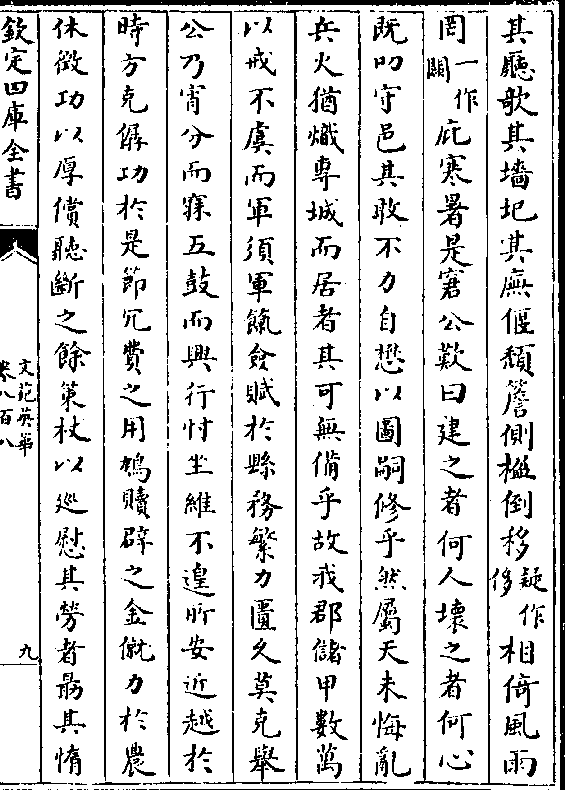 其廳欹其墻圮其廡偃頹簷側楹倒移疑作侈相倚風雨
罔一作闕庇寒暑是窘公歎曰建之者何人壞之者何心
既叨守邑其敢不力自懋以圖嗣修乎然屬天未悔亂
兵火猶熾専城而居者其可無備乎故我郡儲甲數萬
以戒不虞而軍須軍餼僉賦於縣務繁力匱久莫克舉
公乃宵分而寐五鼓而興行忖坐維不遑所安近越於
時方克僝功於是節冗費之用鳩贖辟之金僦力於農
休徴功以厚償聽斷之餘策杖以廵慰其勞者勗其惰
欽定四庫全書
文苑英華
卷八百八
九